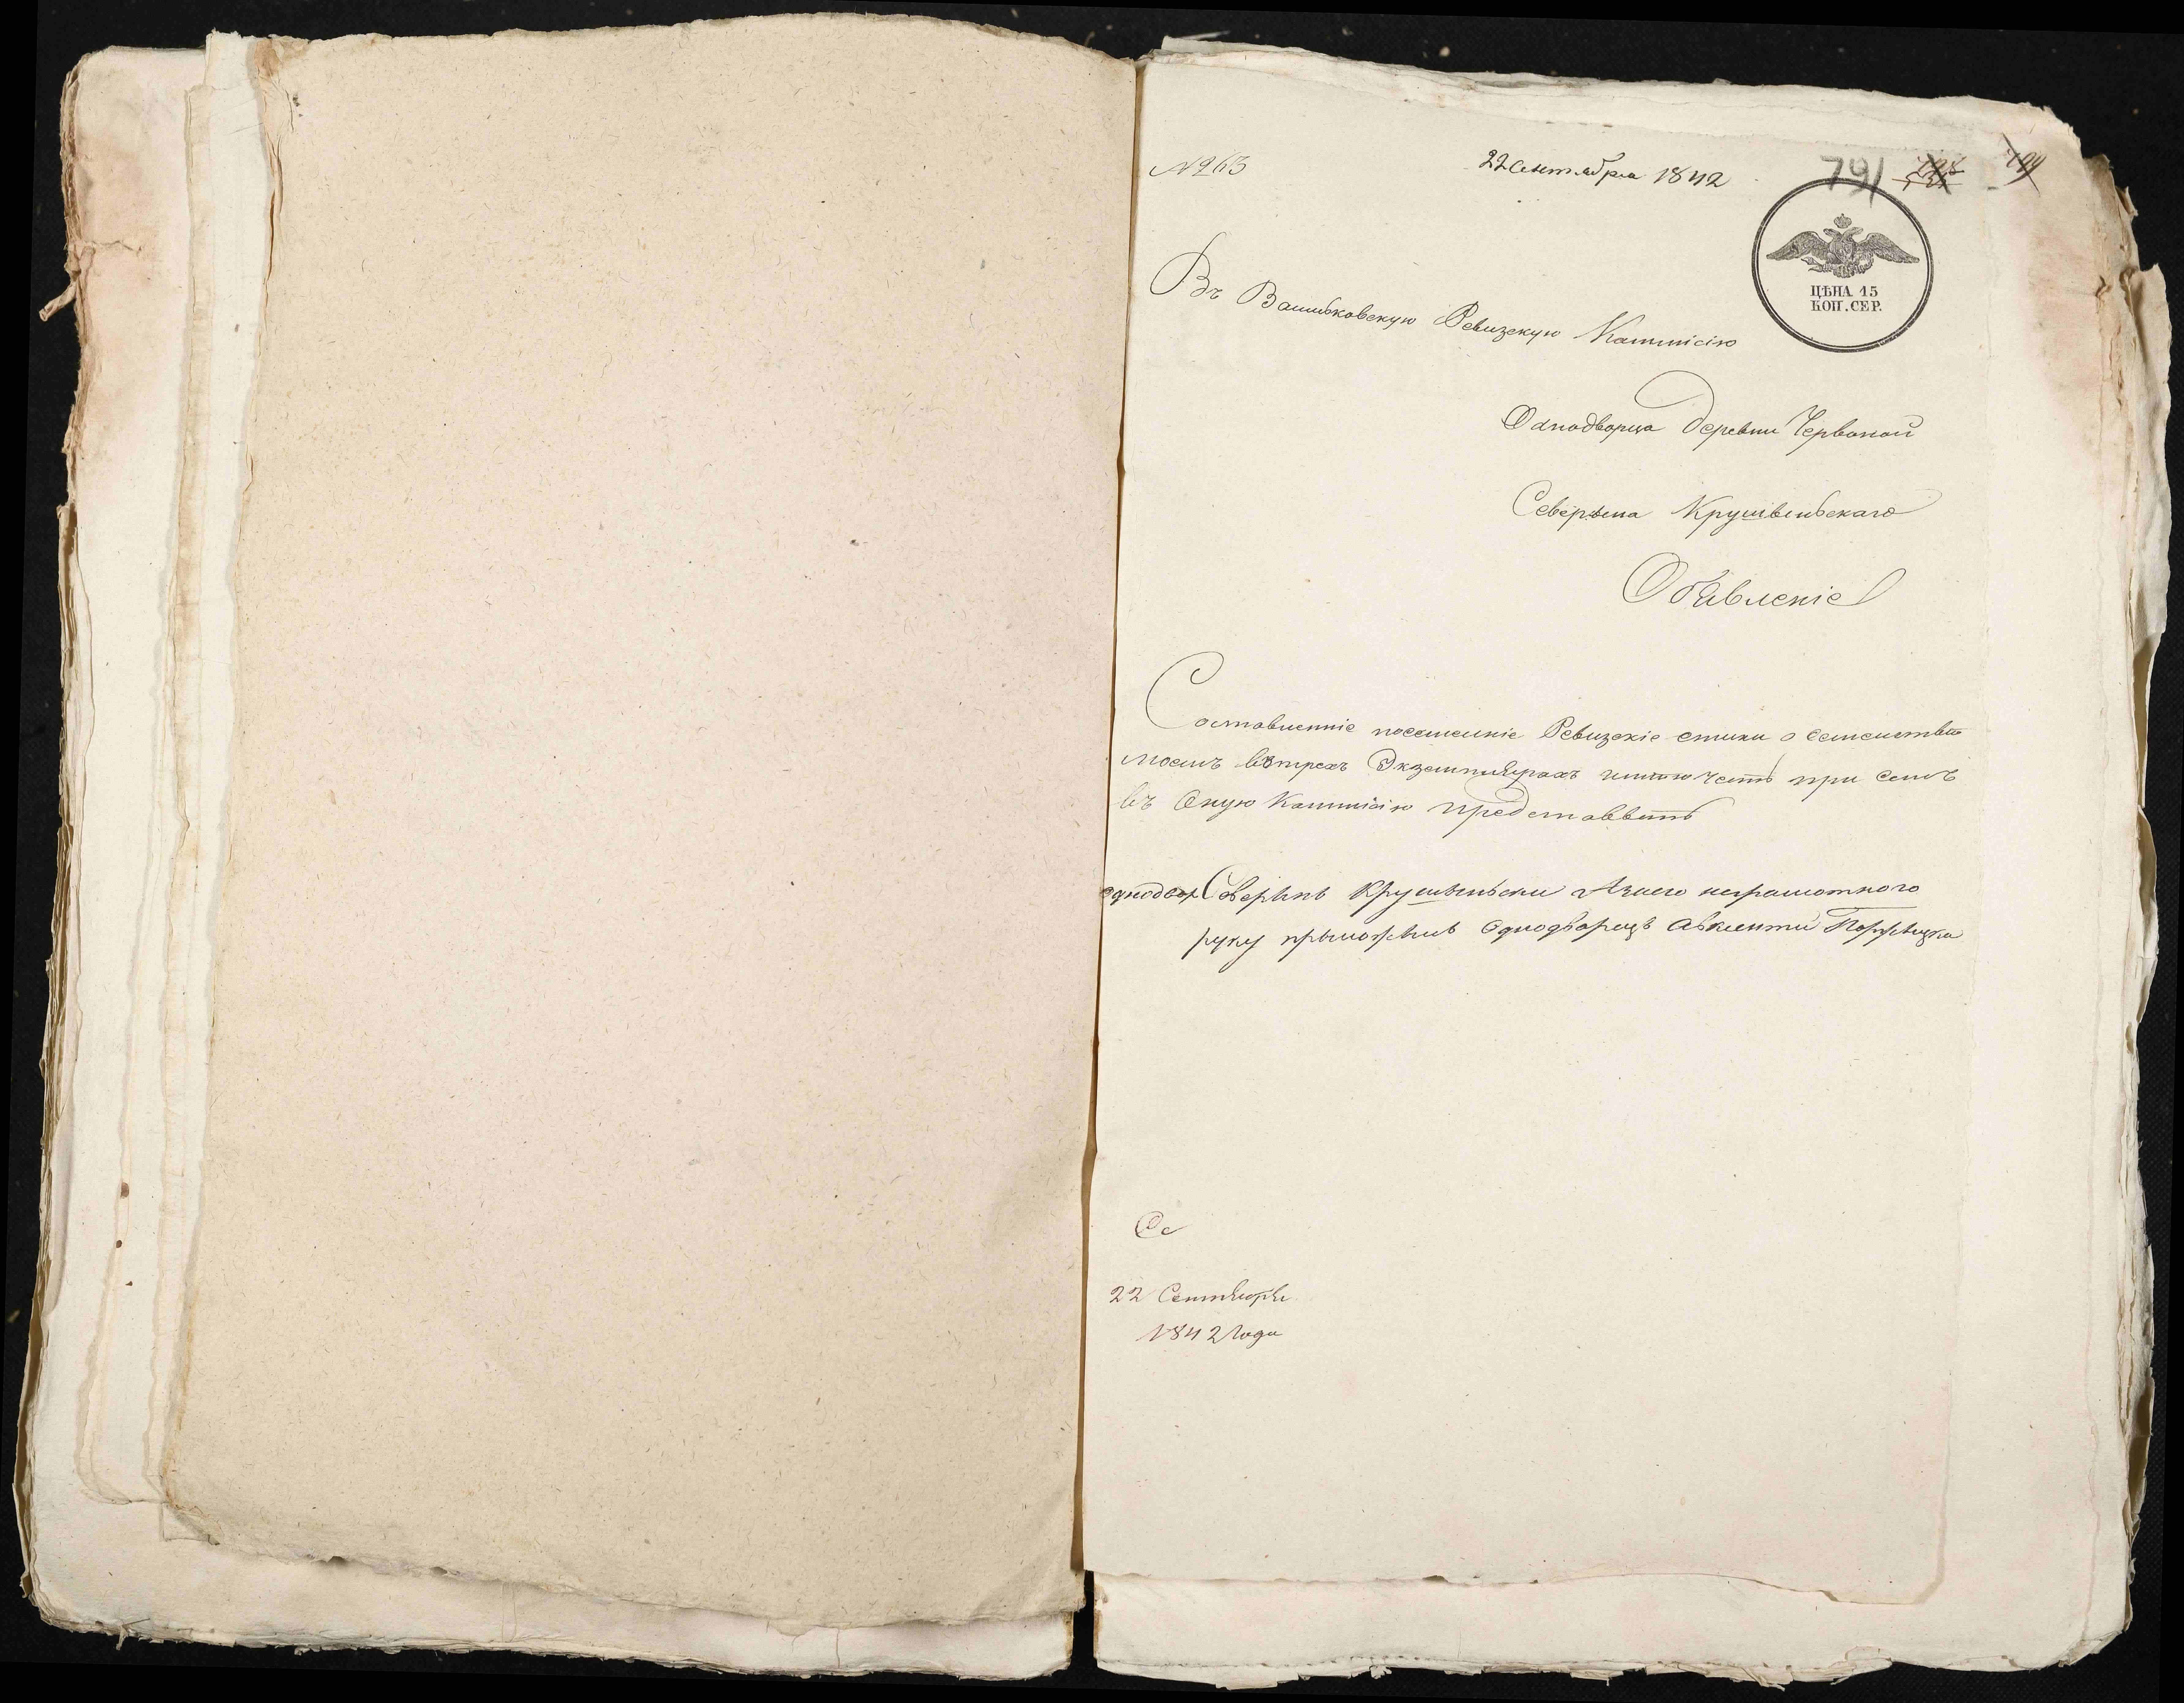 №263
22 Сентября 1842
791
ЦѢНА 15
КОП. СЕР.
Въ Васильковскую Ревизскую Коммисію
Однодворца деревни Червоной
Северына Крушевльскаго
Обявленіе
Составленніе посемейніе Ревизскіе списки о семействѣ
моемъ въ трехъ Экземплярахъ имѣю честь при семъ
въ Оную Коммисію представить
Северинъ неграмотного
руку прыложилъ Однодворецъ
22 Сентября
1842 Года